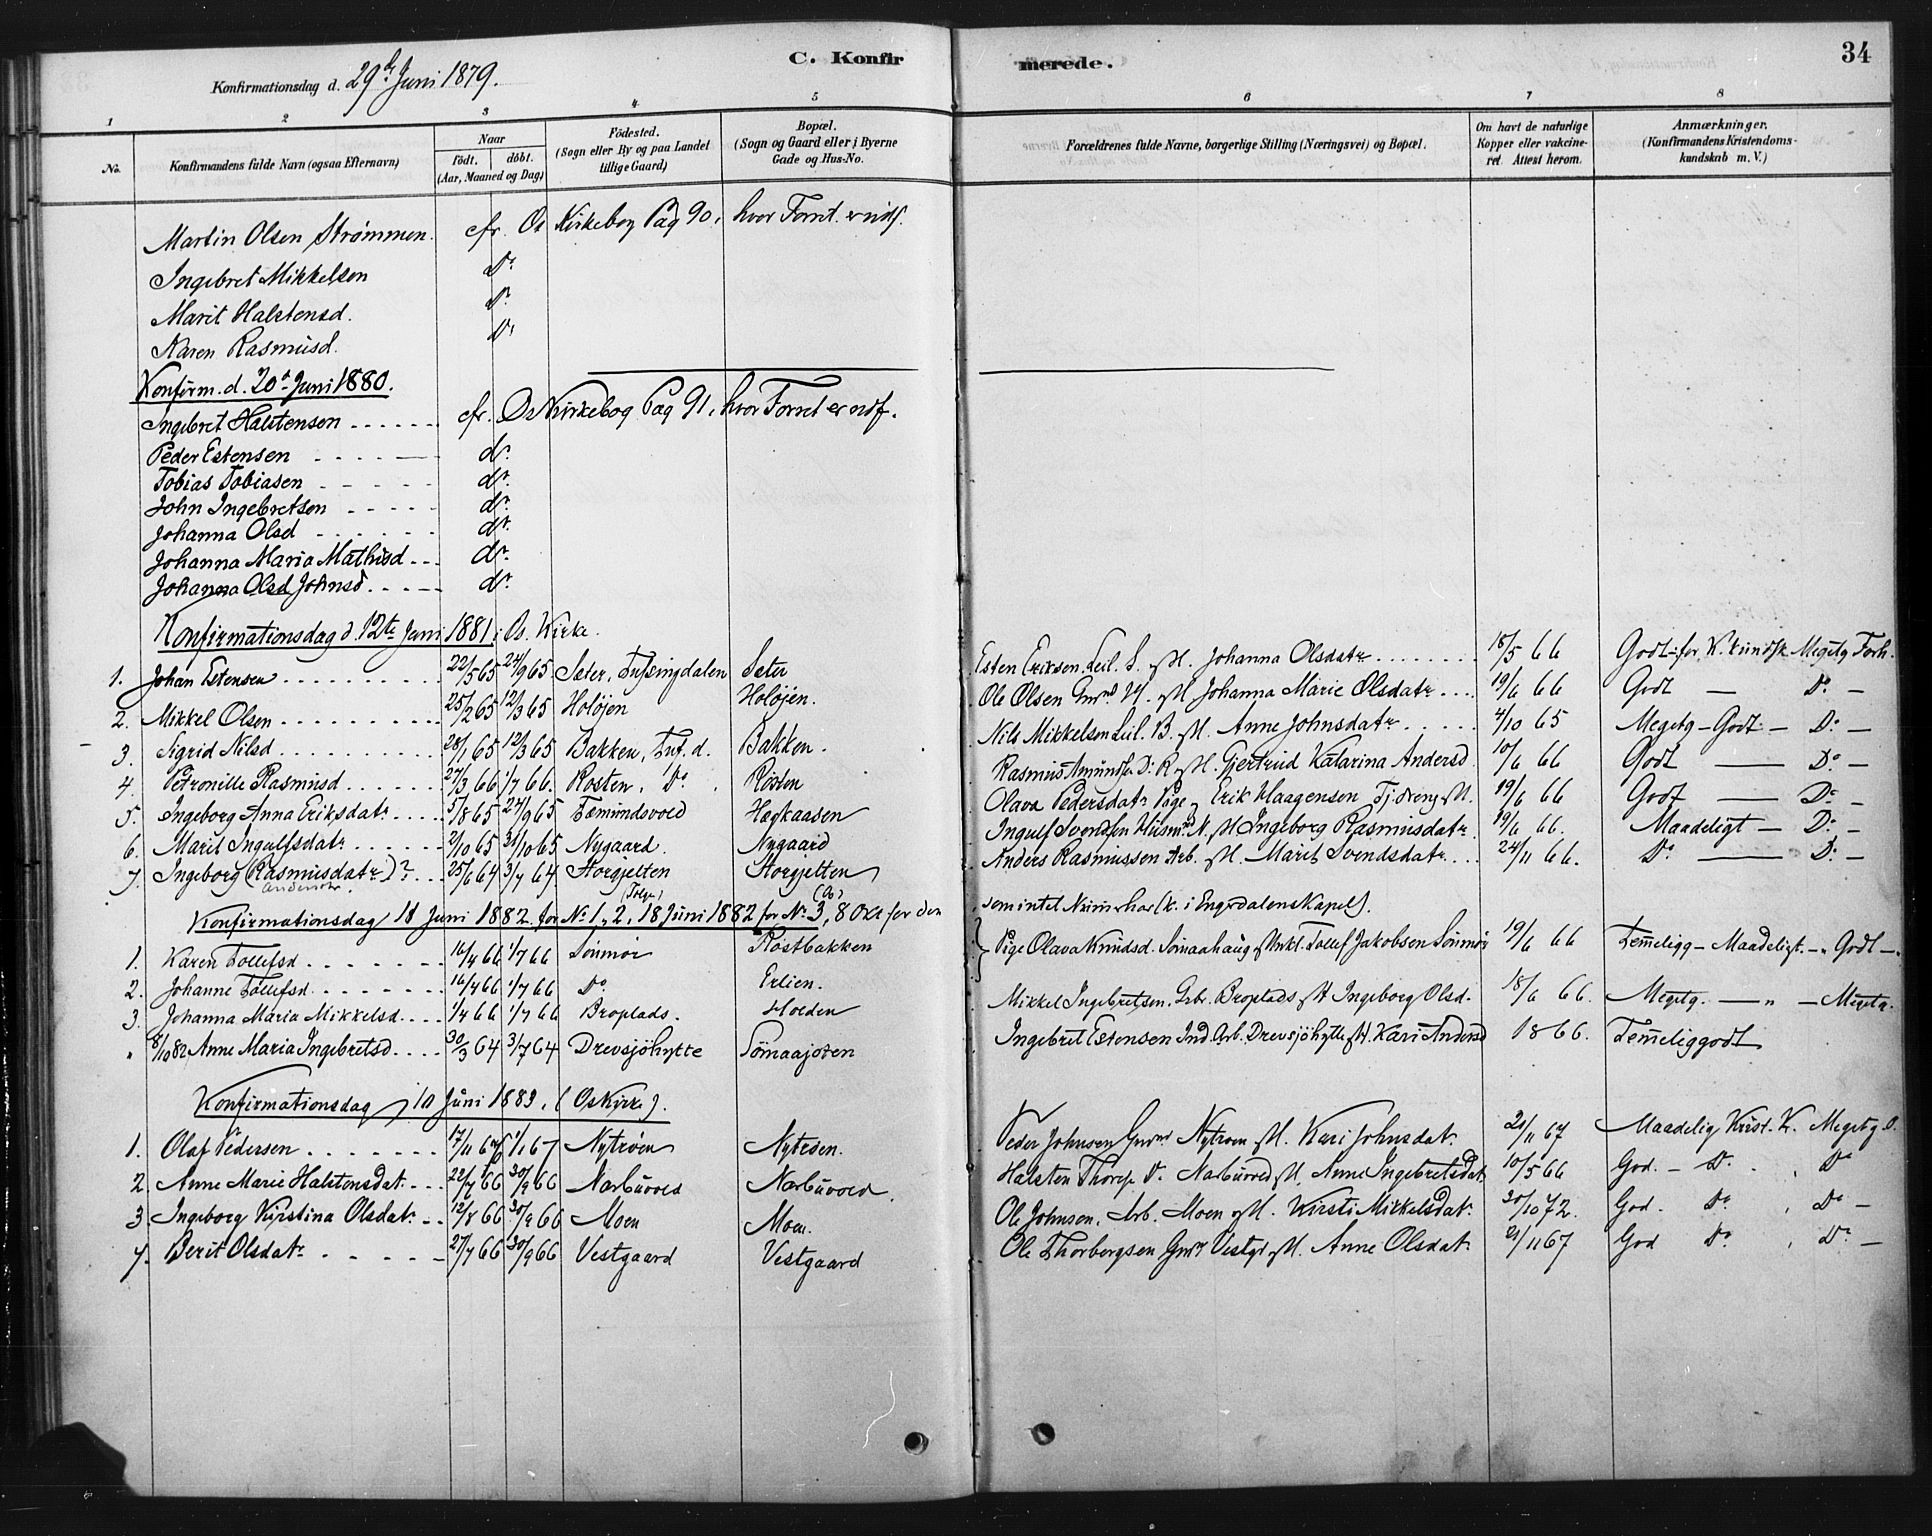 C. Konfirmerede. 34
Konfirmationsdag d. 29de Juni 1879.
1 2 3 4 5 6 7 8
No. Konfirmandens fulde Navn (ogsaa Efternavn) Naar födt. döbt. (Aar, Maaned og Dag) Födested. (Sogn eller By og paa Landet tillige Gaard) Bopæl. (Sogn og Gaard eller i Byerne Gade og Hus-No. Forældrenes fulde Navne, borgerlige Stilling (Næringsvei) og Bopæl. Om havt de naturlige Kopper eller vakcineret. Attest herom. Anmærkninger. (Konfirmandens Kristendomskundskab m. V.)
Martin Olsen Strømmen. cfr. Os Kirkebog Pag 90, hvor Forret. er indf.
Ingebret Mikkelsen Do
Marit Halstensd. Do
Karen Rasmusd. Do
Konfirm. d. 20de Juni 1880.
Ingebret Halstensen cfr. Os Kirkebog Pag 91, hvor Forret er indf.
Peder Estensen do.
Tobias Tobiasen do.
John Ingebretsen do.
Johanna Olsd do.
Johanna Maria Mathisd do.
Johanna Olsd Johnsd do.
Konfirmationsdag d. 12te Juni 1881 i Os. Kirke.
1. Johan Estensen 22/5 65 24/9 65 Sæter, Tufsingdalen Seter Esten Eriksen Leil. S. og H. Johanna Olsdatr 18/5 66 Godt for K. kundsk Megetg Forh.
2. Mikkel Olsen 25/2 65 12/3 65 Holøjen Holøjen. Ole Olsen Gmd H. og H Johanna Marie Olsdatr 19/6 66 Godt — Do —
3. Sigrid Nilsd 28/1 65 12/3 65 Bakken, Tuf. d. Bakken. Nils Mikkelsen Leil. B. og H. Anne Johnsdatr 4/10 65 Megetg – Godt – Do —
4. Petronille Rasmusd 27/3 66 1/7 66. Rosten, Do Rösten Rasmus Amundsen Do R og H. Gjertrud Katarina Andersd 10/6 66 Godt — Do —
5. Ingeborg Anna Eriksdatr 5/8 65 24/9 65 Fæmundsvold Haakaasen Olava Pedersdatr Pige og Erik Haagensen 19/6 66 Godt — Do —
6. Marit Ingulfsdatr 2/10 65 31/10 65 Nygaard. Nygaard Ingulf Svendsen Husmd N. og H Ingeborg Rasmusdatr 19/6 66. Maadeligt — Do —
7. Ingeborg (Rasmusdatr)? Andersdr. 25/6 64 3/7 64. Storgjelten Storgjelten Anders Rasmussen Arb. og H. Marit Svendsdatr 24/11 66. Do — Do —
Konfirmationsdag 11 Juni 1882 for No 1, 2, (Tolge) 18 Juni 1882 for No 3, (Os) 8 Okt for den som intet Numer har (k. i Engerdalens Kapel).
1. Karen Tollefsd 16/4 66 1/7 66 Sönmör Röstbakken Pige Olava Knudsd. Sömaahaug og Unkl. Tollef Jakobsen Sönmör 19/6 66 Temmeligg – Maadeligt – Godt –
2. Johanne Tollefsd 16/4 66 1/7 66 Do Erlien.
3. Johanna Maria Mikkelsd 1/4 66 1/7 66 Broplads. Holden Mikkel Ingebretsen. Arb. Broplads og H Ingeborg Olsd. 18/6 66. Megetg. — „ — Megetg.
„ 8/10 82 Anne Maria Ingebretsd 30/3 64 3/7 64 Drevsjöhytte Sömaajoten Ingebret Estensen Ind. Arb. Drevsjöhytte og H. Kari Andersd 18 66. Temmeliggodt
Konfirmationsdag 10 Juni 1883, (Os Kirke).
1. Olaf Pedersen 17/11 67 1/1 67 Nytrøen Nytröen. Peder Johnsen Gmd Nytroen og H. Kari Johnsdatr 21/11 67 Maadelig Krist. K. Megetg O.
2. Anne Marie Halstensdat. 22/7 66 30/9 66 Narbuvold Narbuvold. Halsten Thorsp Do Narbuvold og H. Anne Ingebretsdat 10/5 66 God. – Do. Do
3. Ingeborg Kirstina Olsdatr 12/8 66 30/9 66 Moen Moen. Ole Johnsen. Arb. Moen og H. Kirsti Mikkelsdatr 20/10 72. God. Do, Do —
4. Berit Olsdatr 27/7 66 30/9 66 Vestgaard Vestgaard Ole Thorbergsen Gmd Vestgd og H. Anne Olsdatr 21/11 67 God Do, Do —